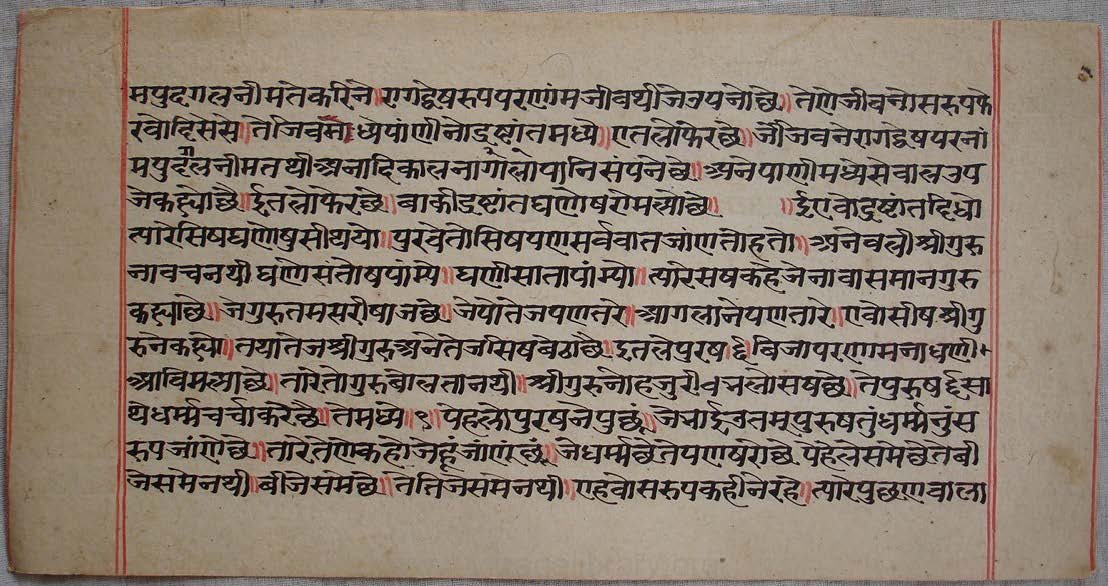 मपुदगलनीमतेकरिने॥रागद्वेषरुपपरणांमजीवथीजेउपनोछे॥तेणेजीवनोसरुपफे
रवोदिससे॥तेजिवमोध्येपांणीनोद्रष्टांतमध्ये॥एतलोफेरछे॥जौजिवनेरागद्वेषपरनां
मपुदगलनीमतथीअनादिकालनांगोलोपानिसंपनेछे॥अनेपाणीमध्येसेवालउप
जेकह्योछै॥ईतलोफेरछै॥बाकीद्रष्टांतघणोषरोमल्योछे॥ ॥ईएवोद्रष्टांतदिधो
त्यारेसिषघणोषुसीथयो॥पुरवेतोसिषपणसर्ववातजांणतोहतो॥अनेवलीश्रीगुरु
नावचनथीघणोसंतोषपांम्यो॥घणीसातापांम्यो॥त्यारेसषकहेजेनावासमानगुरु
कह्याछे॥जेगुरुतमसरीषाजछे॥जेपोतेजपणतरे॥आगलानेपणतारे॥एवोसीषश्रीगु
रुनेकह्यो॥तथातेजश्रीगुरुअनेतेजसिषबेठाछै॥इतलेपुरुष२बिजापरणामनाधणी
आविमल्याछे॥तारेतोगुरुबोलतानथी॥श्रीगुरुनोहजुरीवडलोसषछे॥तेपुरुष२सा
थेधर्म्मचर्चाकरेछै॥तेमध्ये॥१॥पेहलोपुरषनेपुछुं॥जेभाईउतमपुरुषतुंधर्म्मनुंस
रुपजांणेछै॥तारेतेणेकहोजेहुंजांणुंछुं॥जेधर्म्मछेतेपणषरोछे॥पेहेलेसमेछेतेबी
जेसमेनथी॥बीजेसमेछे॥तेतिजेसमेनथी॥एहवोसरुपकहीनेरहे॥त्यारेपुछणवाला